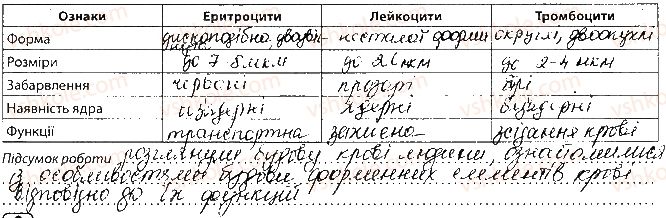 Ознаки Еритроцити Лейкоцити Тромбоцити
Форма дископодібна двоввігнута нестала форми округлі, двоопуклі
Розміри до 7-8 мкм до 20 мкм до 2-4 мкм
Забарвлення червоні прозорі білі
Наявність ядра без'ядерні ядерні без'ядерні
Функції транспортна захисна зсідання крові
Підсумок роботи розглянули будову крові людини, ознайомилися
з особливостями будови форменних елементів крові
відповідно до їх функцій